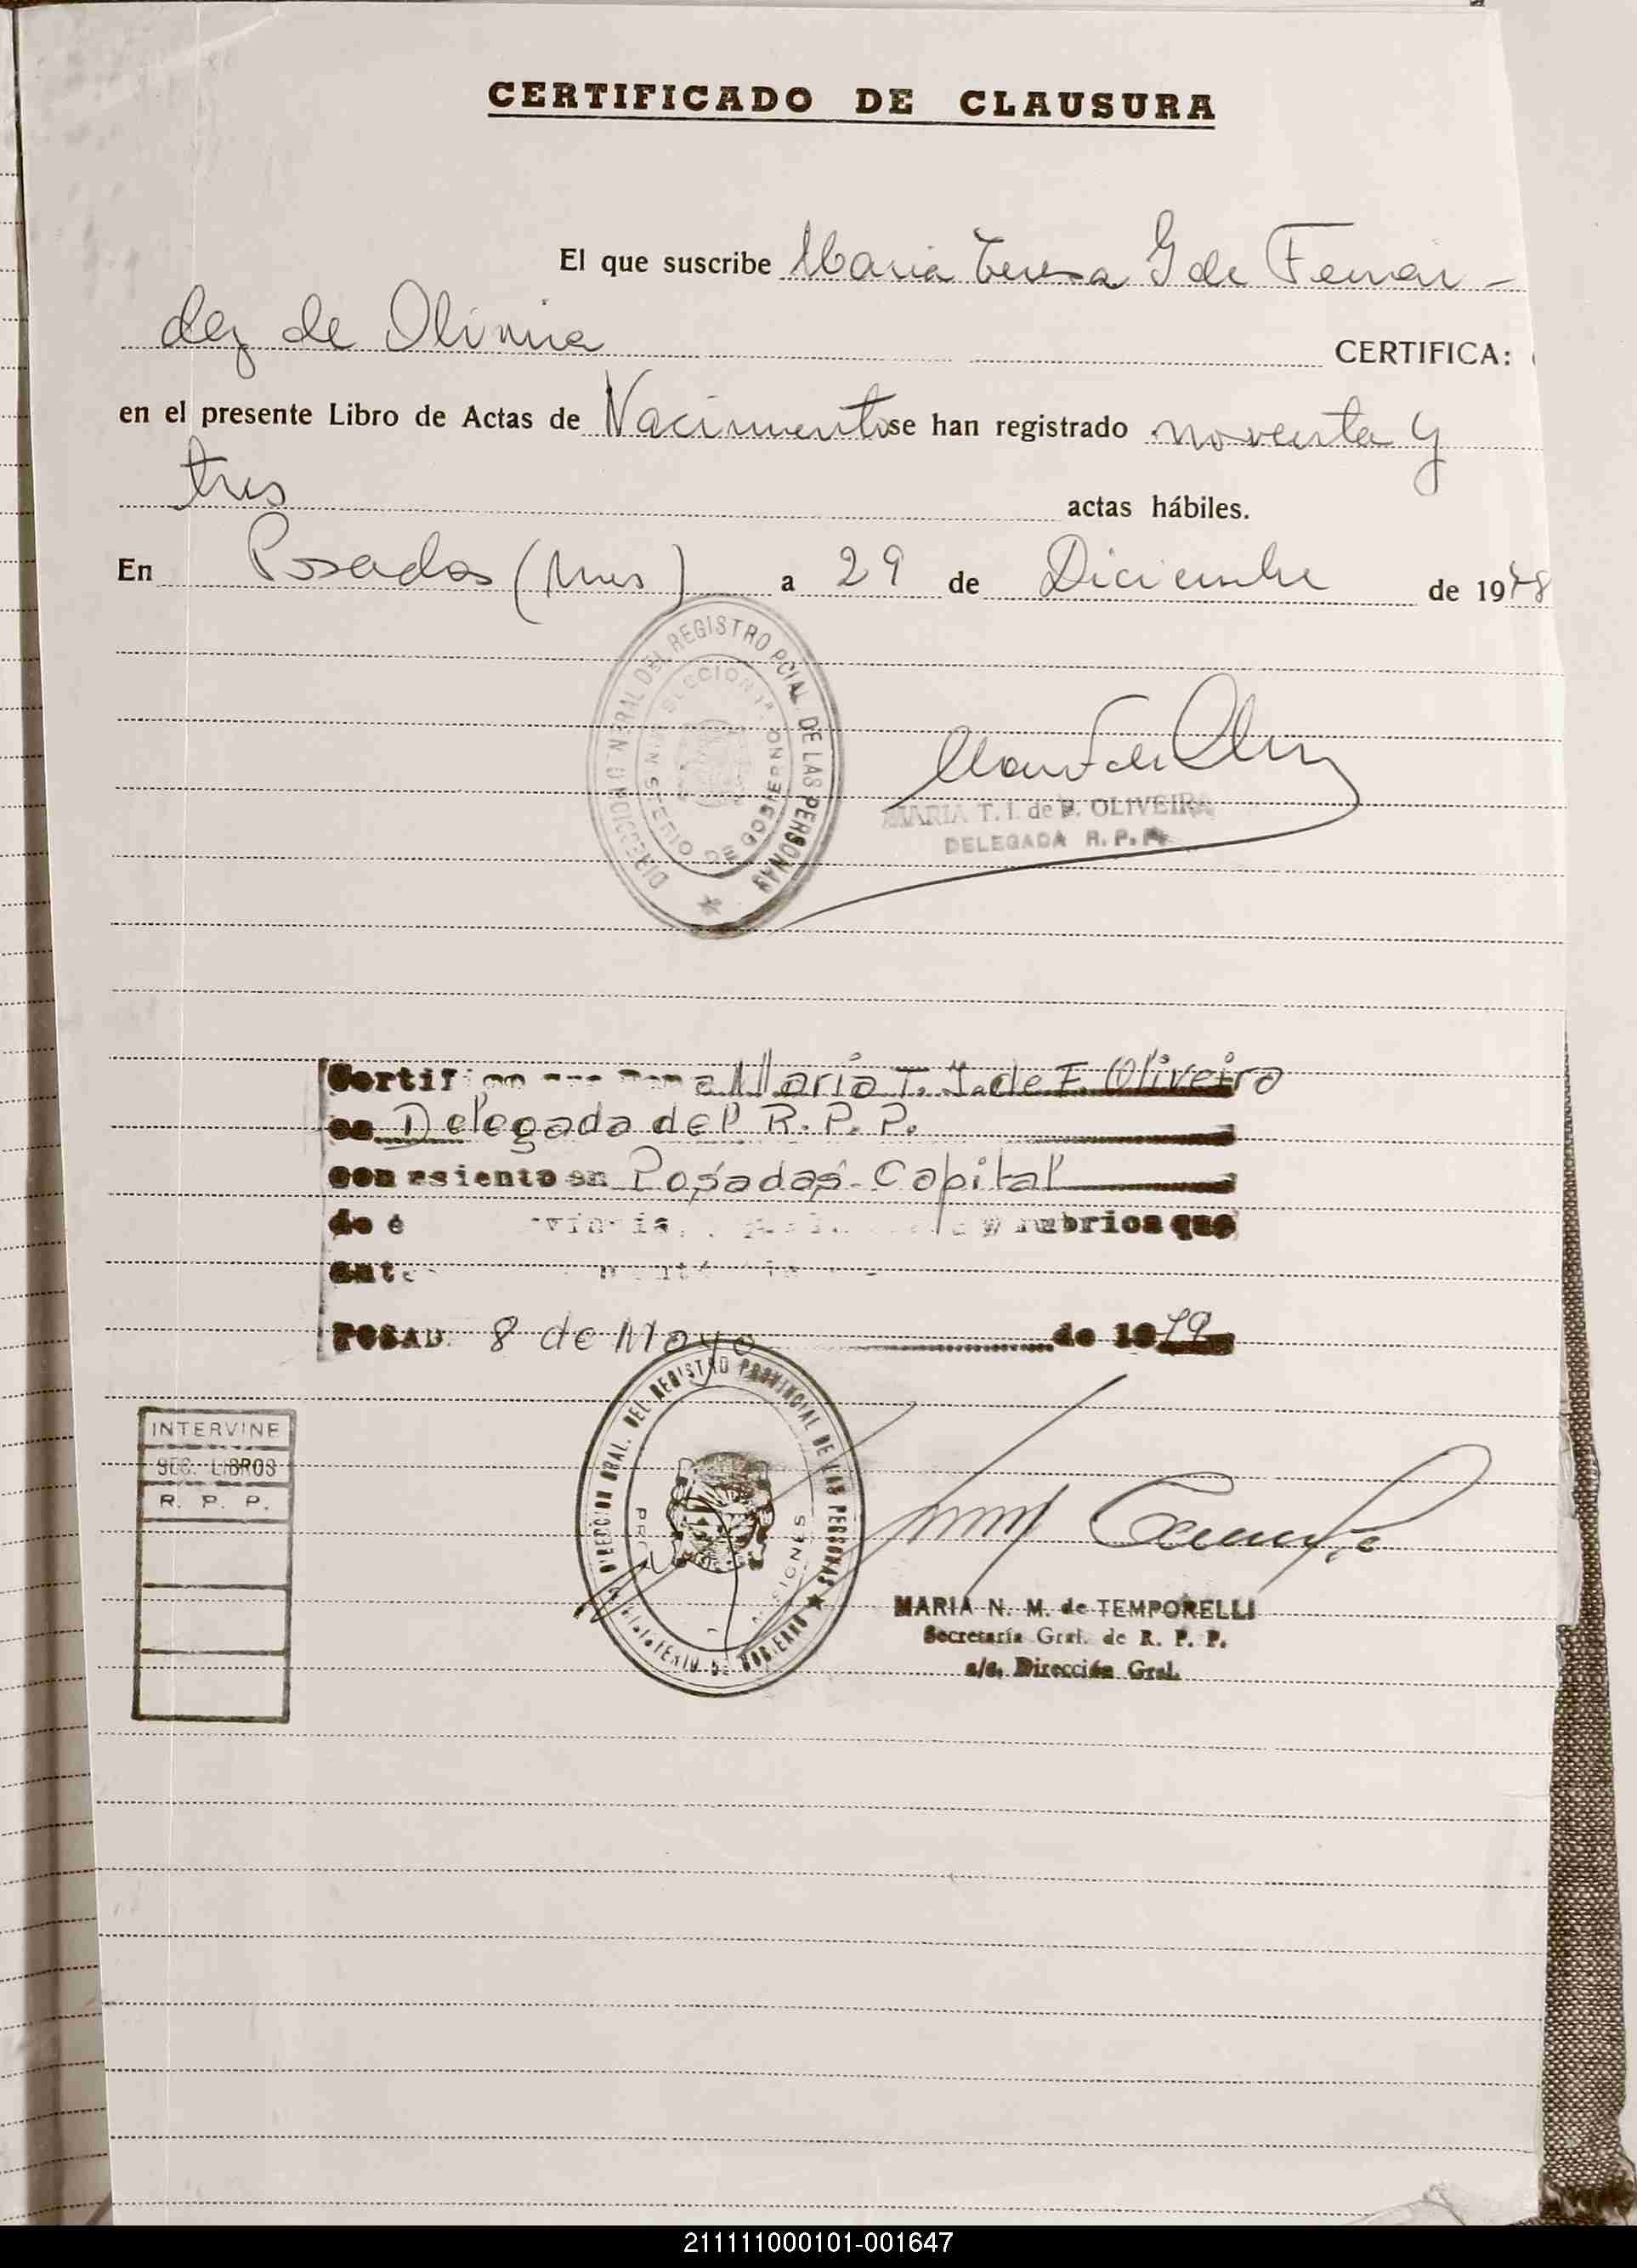 CERTIFICADO DE CLAUSURA
El que suscribe Maria Teresa G de Fernan-
dez de Oliveira CERTIFICA:
en el presente Libro de Actas de Nacimiento se han registrado noventa y
tres actas hábiles.
En Posadas (Mnes) a 29 de Diciembre de 1978
DIRECCION GENERAL DEL REGISTRO PCIAL. DE LAS PERSONAS
SECCION 1a.
MINISTERIO DE GOBIERNO
MARIA T. I. de F. OLIVEIRA
DELEGADA R. P. P.
Certifico María T. I. de F. Oliveira
es Delegada del R. P. P.
con asiento en Posadas - Capital
de rubrica que
POSAD. 8 de Mayo de 1979
INTERVINE
SEC. LIBROS
R. P. P.
DIRECCION GRAL. DEL REGISTRO PROVINCIAL DE LAS PERSONAS
MINISTERIO DE GOBIERNO
MARIA N. M. de TEMPORELLI
Secretaria Gral. de R. P. P.
a/c. Dirección Gral.
211111000101-001647